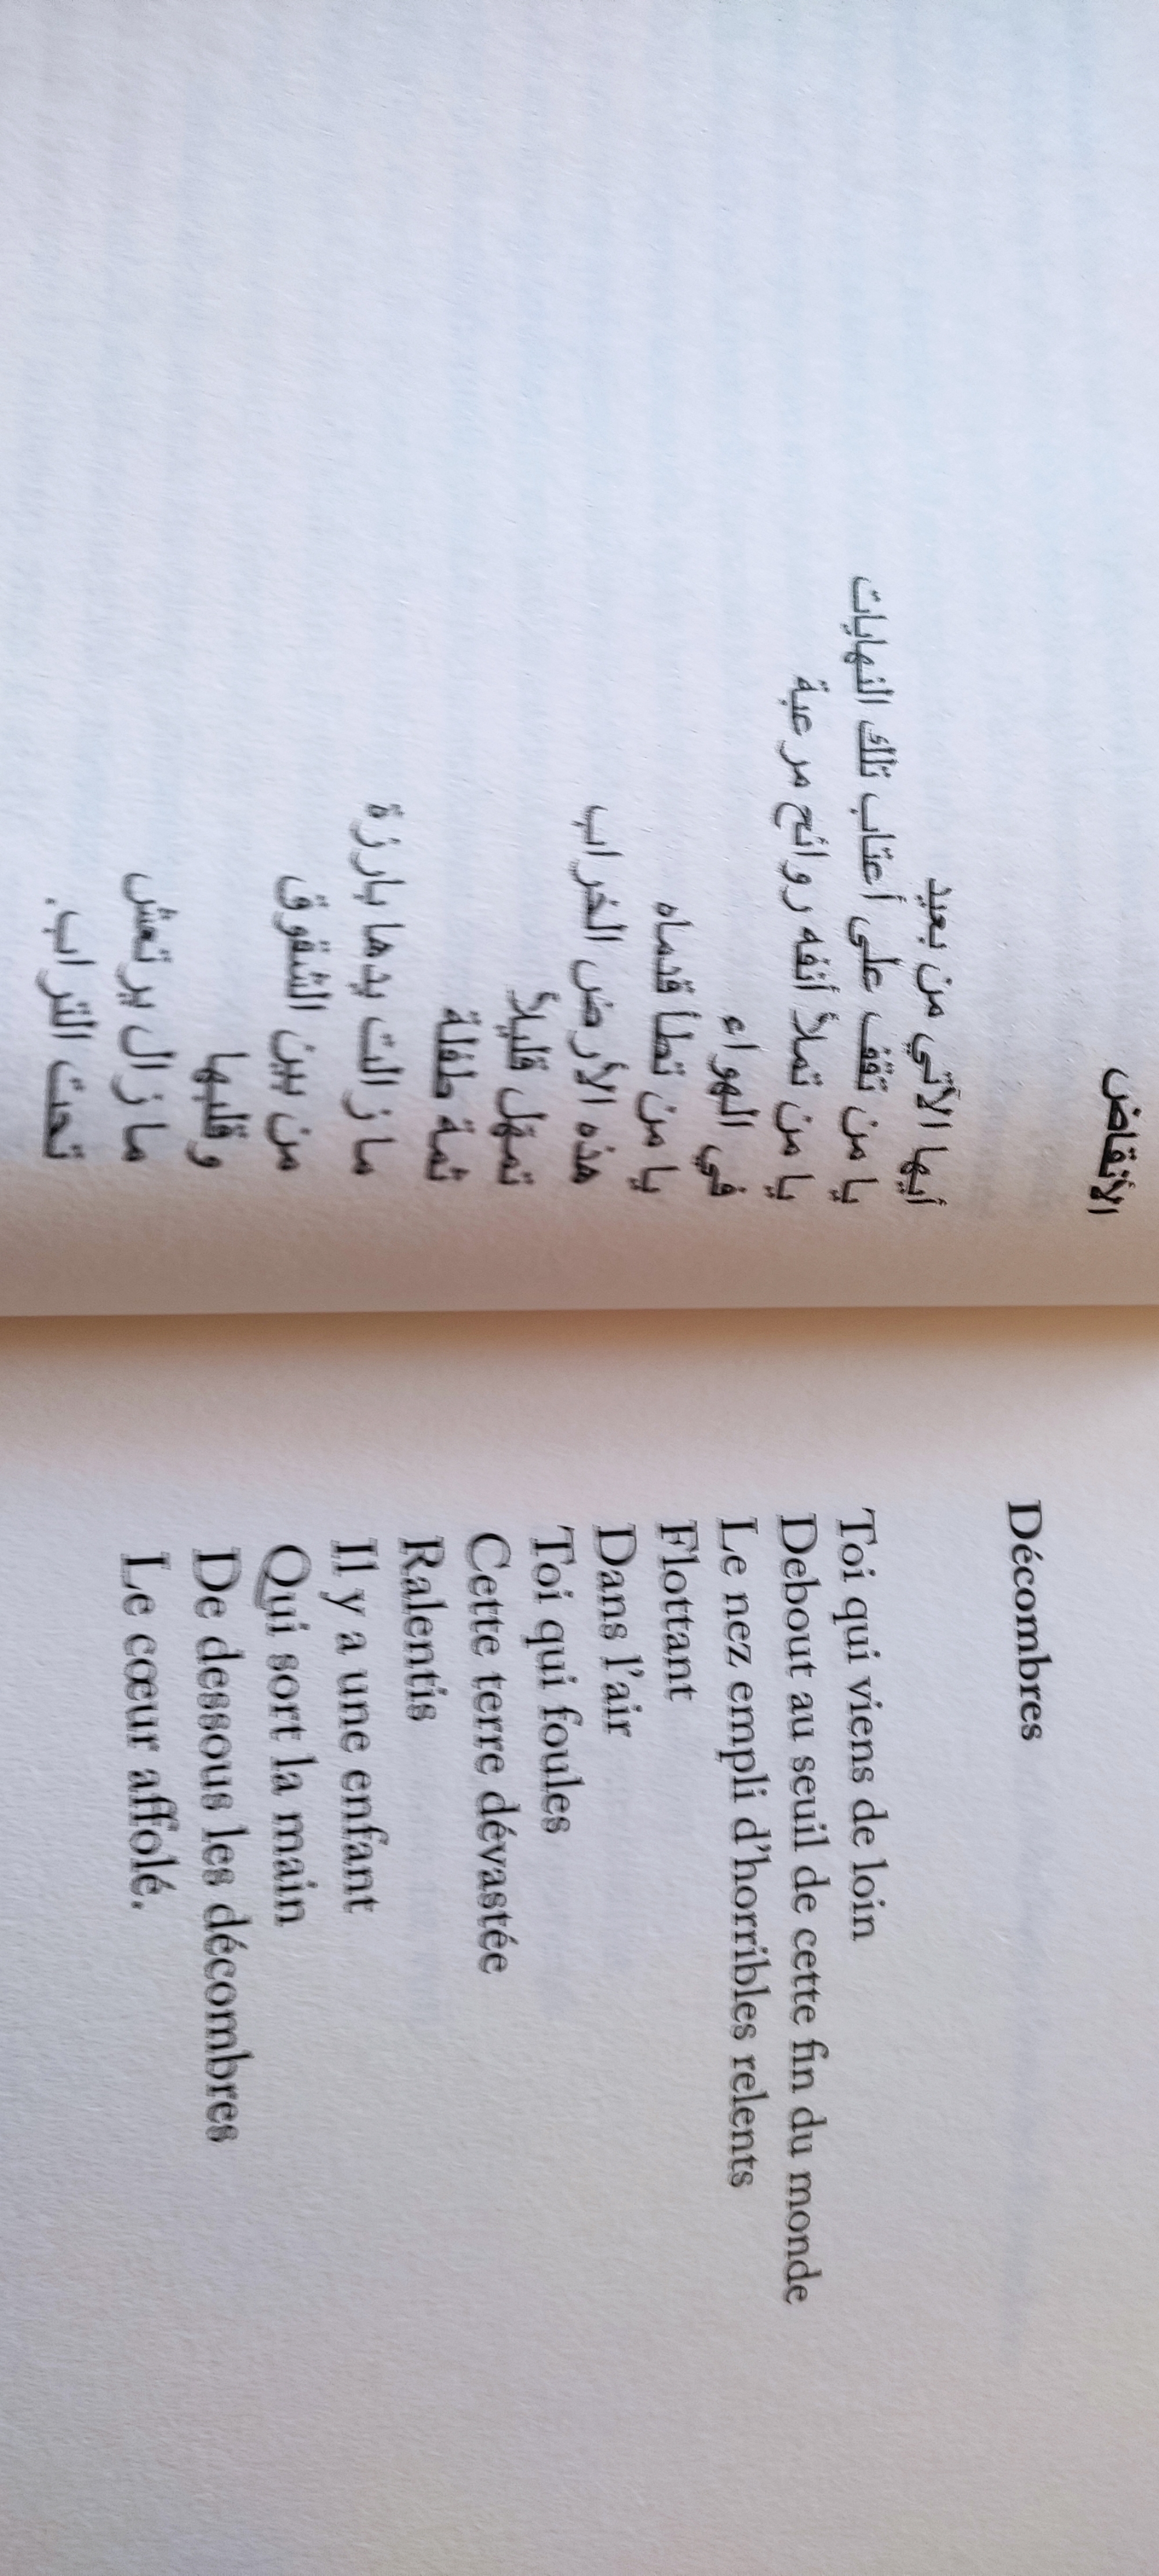 الأنقاض
أيها الآتي من بعيد
يا من تقف على أعتاب تلك النهايات
يا من تملأ أنفه روائح مرعبة
في الهواء
يا من تطأ قدماه
هذه الأرض الخراب
تمهّل قليلاً
ثمة طفلة
ما زالت يدها بارزة
من بين الشقوق
وقلبها
ما زال يرتعش
تحت التراب.
Décombres
Toi qui viens de loin
Debout au seuil de cette fin du monde
Le nez empli d'horribles relents
Flottant
Dans l'air
Toi qui foules
Cette terre dévastée
Ralentis
Il y a une enfant
Qui sort la main
De dessous les décombres
Le cœur affolé.